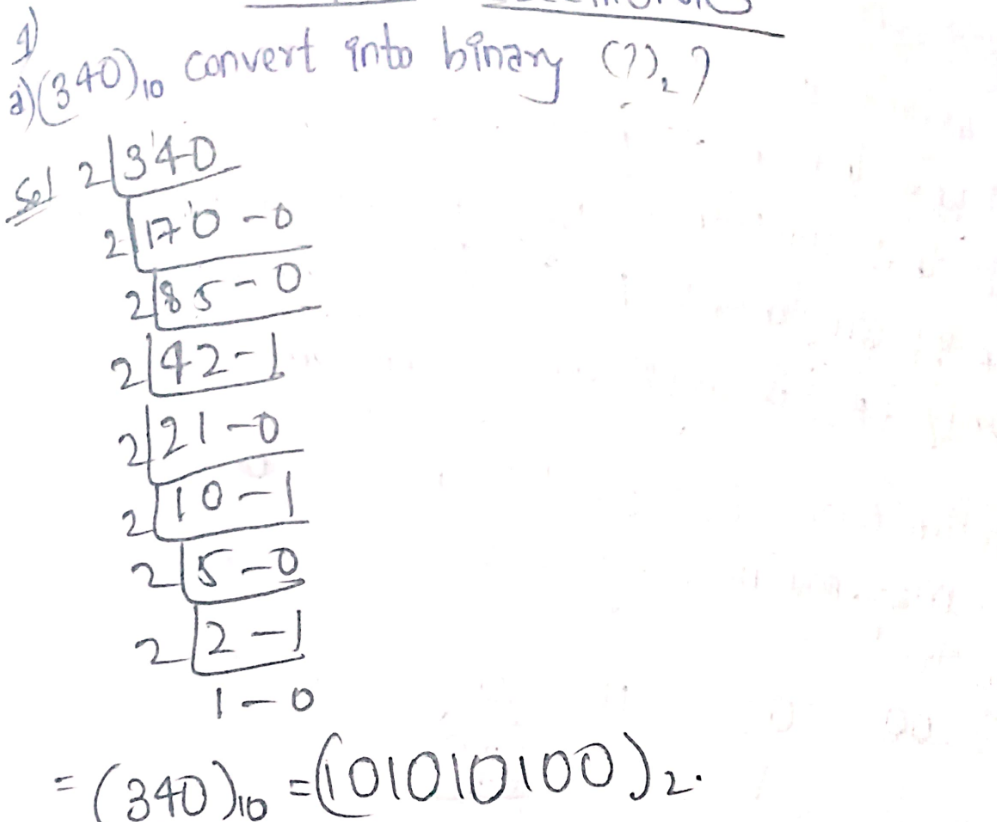 1)
a) (340)10 convert into binary (?)2 ?
Sol 2|340
2|170 - 0
2|85 - 0
2|42 - 1
2|21 - 0
2|10 - 1
2|5 - 0
2|2 - 1
1 - 0
= (340)10 = (101010100)2.